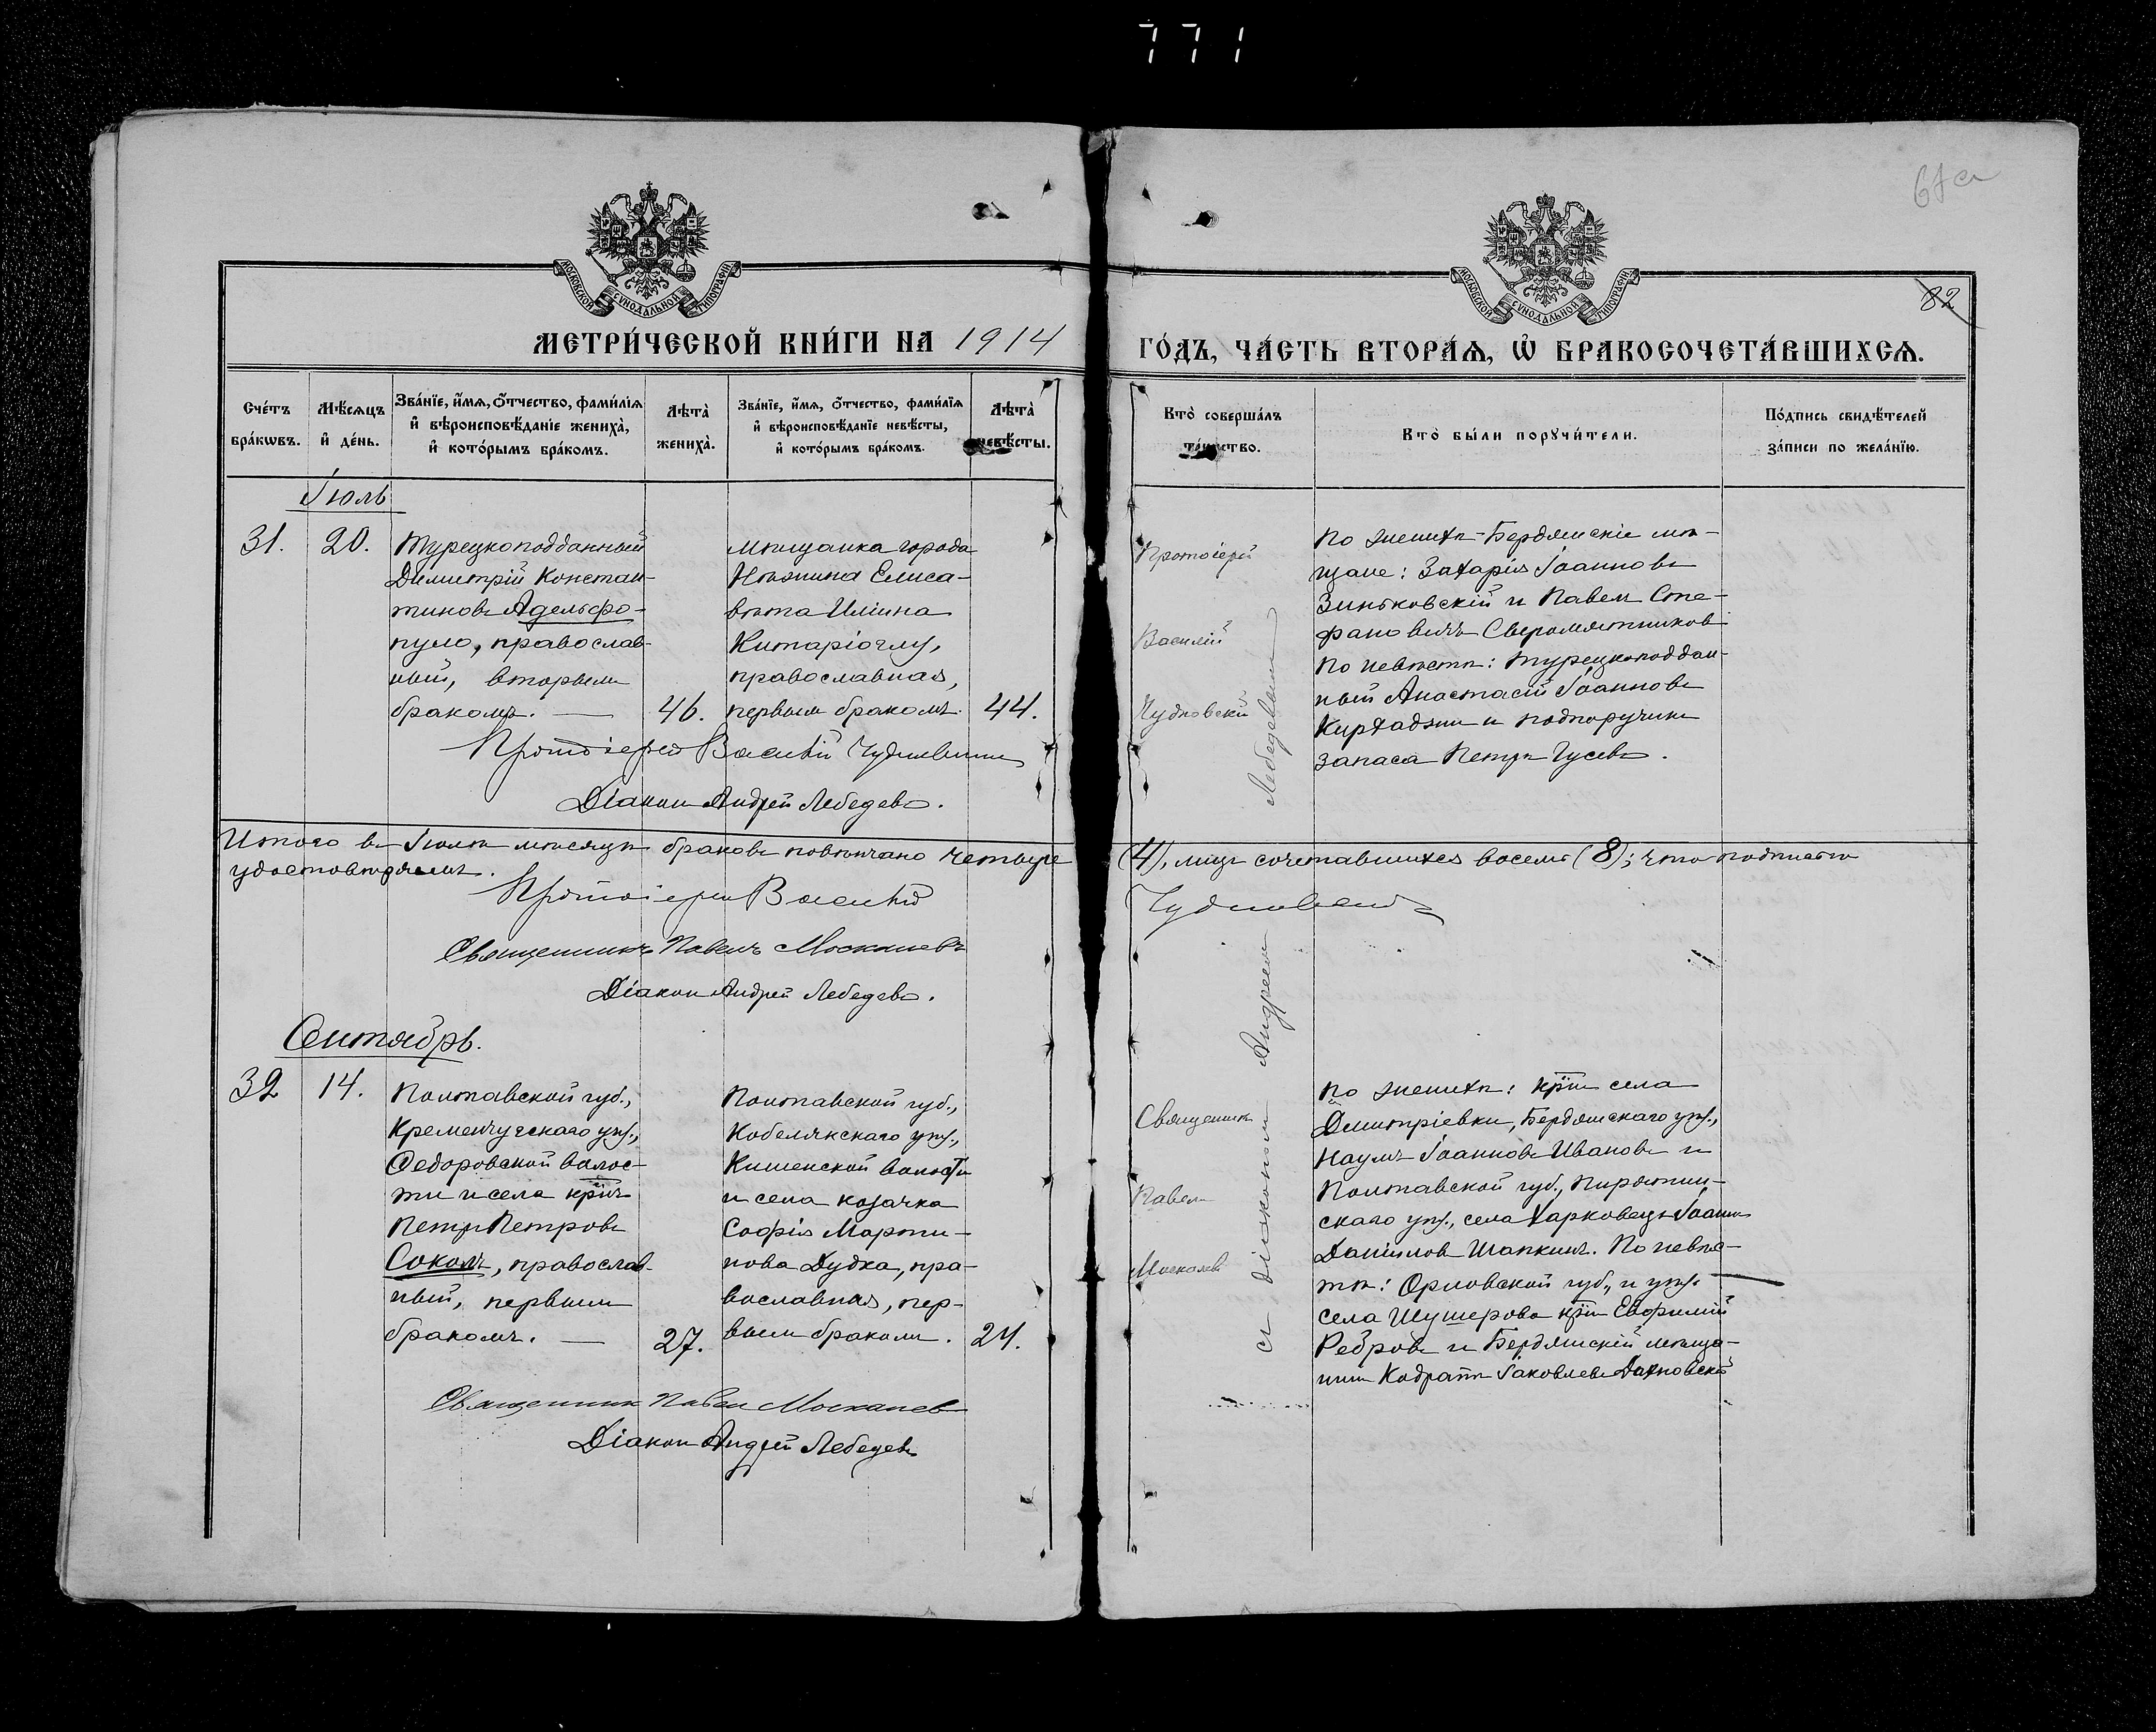 771
67 а
82
МОСКОВСКОЙ СУНОДАЛЬНОЙ ТИПОГРАФІИ
МОСКОВСКОЙ СУНОДАЛЬНОЙ ТИПОГРАФІИ
МЕТРИ́ЧЕСКОЙ КНИ́ГИ НА 1914
ГО́ДЪ, ЧА́СТЬ ВТОРА́Ѧ, Ѽ БРАКОСОЧЕТА́ВШИХСѦ.
Сче́тъ бра́кѡвъ.
Мѣ́сѧцъ и҆ де́нь.
Зва́нїе, и҆́мѧ, ѻ҆́тчество, фами́лїѧ и҆ вѣроисповѣ́данїе жениха̀, и҆ кото́рымъ бра́комъ.
Лѣта̀ жениха̀.
Зва́нїе, и҆́мѧ, ѻ҆́тчество, фами́лїѧ и҆ вѣроисповѣ́данїе невѣ́сты, и҆ кото́рымъ бра́комъ.
Лѣта̀ невѣ́сты.
Кто̀ соверша́лъ та́инство.
Кто̀ бы́ли порꙋчи́тели.
По́дпись свидѣ́телей за́писи по жела́нїю.
Іюль
31.
20.
Турецкоподданный
Димитрій Констан-
тиновъ Адельфо-
пуло, православ-
ный, вторымъ
бракомъ. —
46.
Мѣщанка города
Нѣжина Елиса-
вѣта Иліина
Китаріоглу,
православная,
первымъ бракомъ.
44.
Протоіерей
Василій
Чудновскій
По женихѣ - Бердянскіе мѣ-
щане: Захарія Іоанновъ
Зиньковскій и Павелъ Сте-
фановичъ Свѣромятниковъ
По невѣстѣ: турецкоподдан-
ный Анастасій Іоанновъ
Кирхаджи и подпоручикъ
запаса Петръ Гусевъ.
Протоіерей Василій Чудновскій
Діаконъ Андрей Лебедевъ.
Итого въ Іюлѣ мѣсяцѣ браковъ повѣнчано четыре
(4), лицъ сочетавшихся восемь (8); что подписью
удостовѣряемъ.
Протоіерей Василій
Чудновскій
Священникъ Павелъ Москалевъ
Діаконъ Андрей Лебедевъ.
Сентябрь.
32
14.
Полтавской губ.,
Кременчугскаго уѣз.,
Федоровской волос-
ти и села кр҃нъ
Петръ Петровъ
Соколъ, православ-
ный, первымъ
бракомъ. —
27.
Полтавской губ.,
Кобелякскаго уѣз.,
Кишенской волости
и села козачка
Софія Марти-
нова Дудка, пра-
вославная, пер-
вымъ бракомъ.
24.
Священникъ
Павелъ
Москалевъ
съ діакономъ Андреемъ Лебедевымъ
По женихѣ: кр҃нъ села
Дмитріевки, Бердянскаго уѣз.,
Наумъ Іоанновъ Ивановъ и
Полтавской губ., Пирятин-
скаго уѣз., села Харковецъ Іоаннъ
Даніиловъ Шапкинъ. По невѣс-
тѣ: Орловской губ., и уѣз.
села Шушерова кр҃нъ Евфимій
Ребровъ и Бердянскій мѣща-
нинъ Кодратъ Іаковлевъ Дахновскій
Священникъ Павелъ Москалевъ
Діаконъ Андрей Лебедевъ